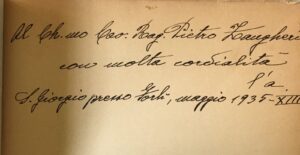 Al Ch.mo Cav. Rag. Pietro Zangheri
con molta cordialità
l'a.
S. Giorgio presso Forlì, maggio 1935-XIII